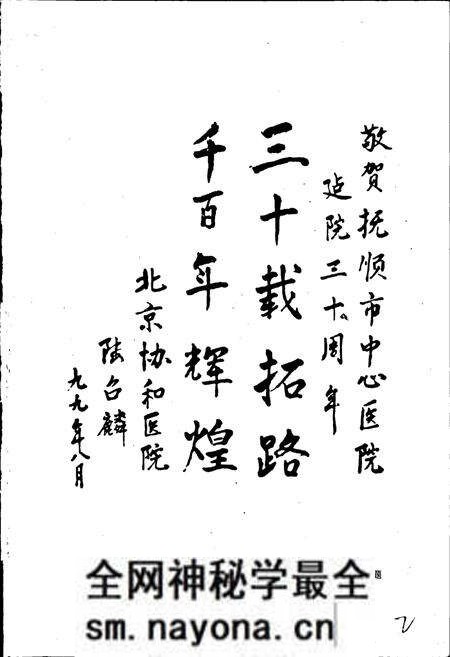 敬贺抚顺市中心医院
建院三十周年
三十载拓路
千百年辉煌
北京协和医院
陆召麟
九九年八月
全网神秘学最全
sm.nayona.cn
2